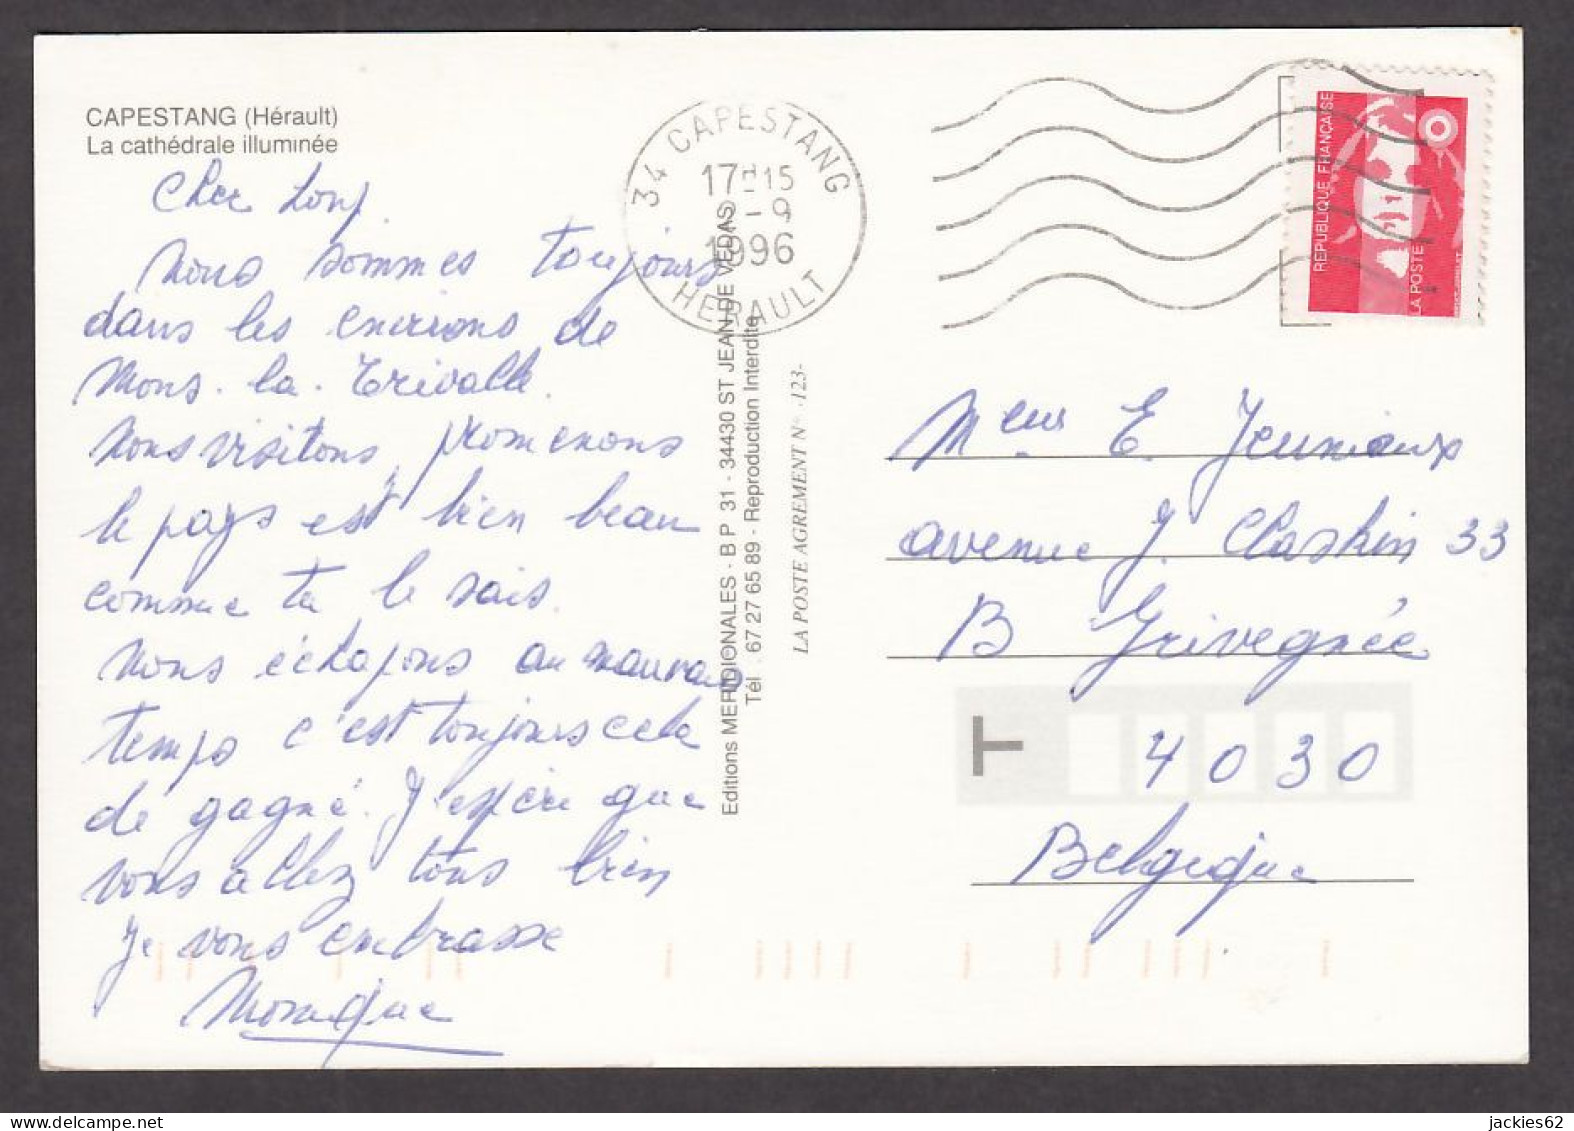 CAPESTANG (Hérault)
La cathédrale illuminée
Cher Louf.
Nous sommes toujours
dans les environs de
Mons. la. Trivalle.
Nous visitons, promenons
le pays est bien beau
comme tu le sais.
Nous échapons au mauvais
temps c'est toujours cela
de gagné. J'espère que
vous allez tous bien
Je vous embrasse
Monique
34 CAPESTANG
17H15
-9
1996
HERAULT
Editions MERIDIONALES - B P 31 - 34430 ST JEAN DE VEDAS
Tél. 67 27 65 89 - Reproduction Interdite
LA POSTE AGREMENT N° 123-
REPUBLIQUE FRANÇAISE
LA POSTE
E. Jeuniaux
avenue J. Claskin 33
B Grivegnée
T
4030
Belgique
jackies62